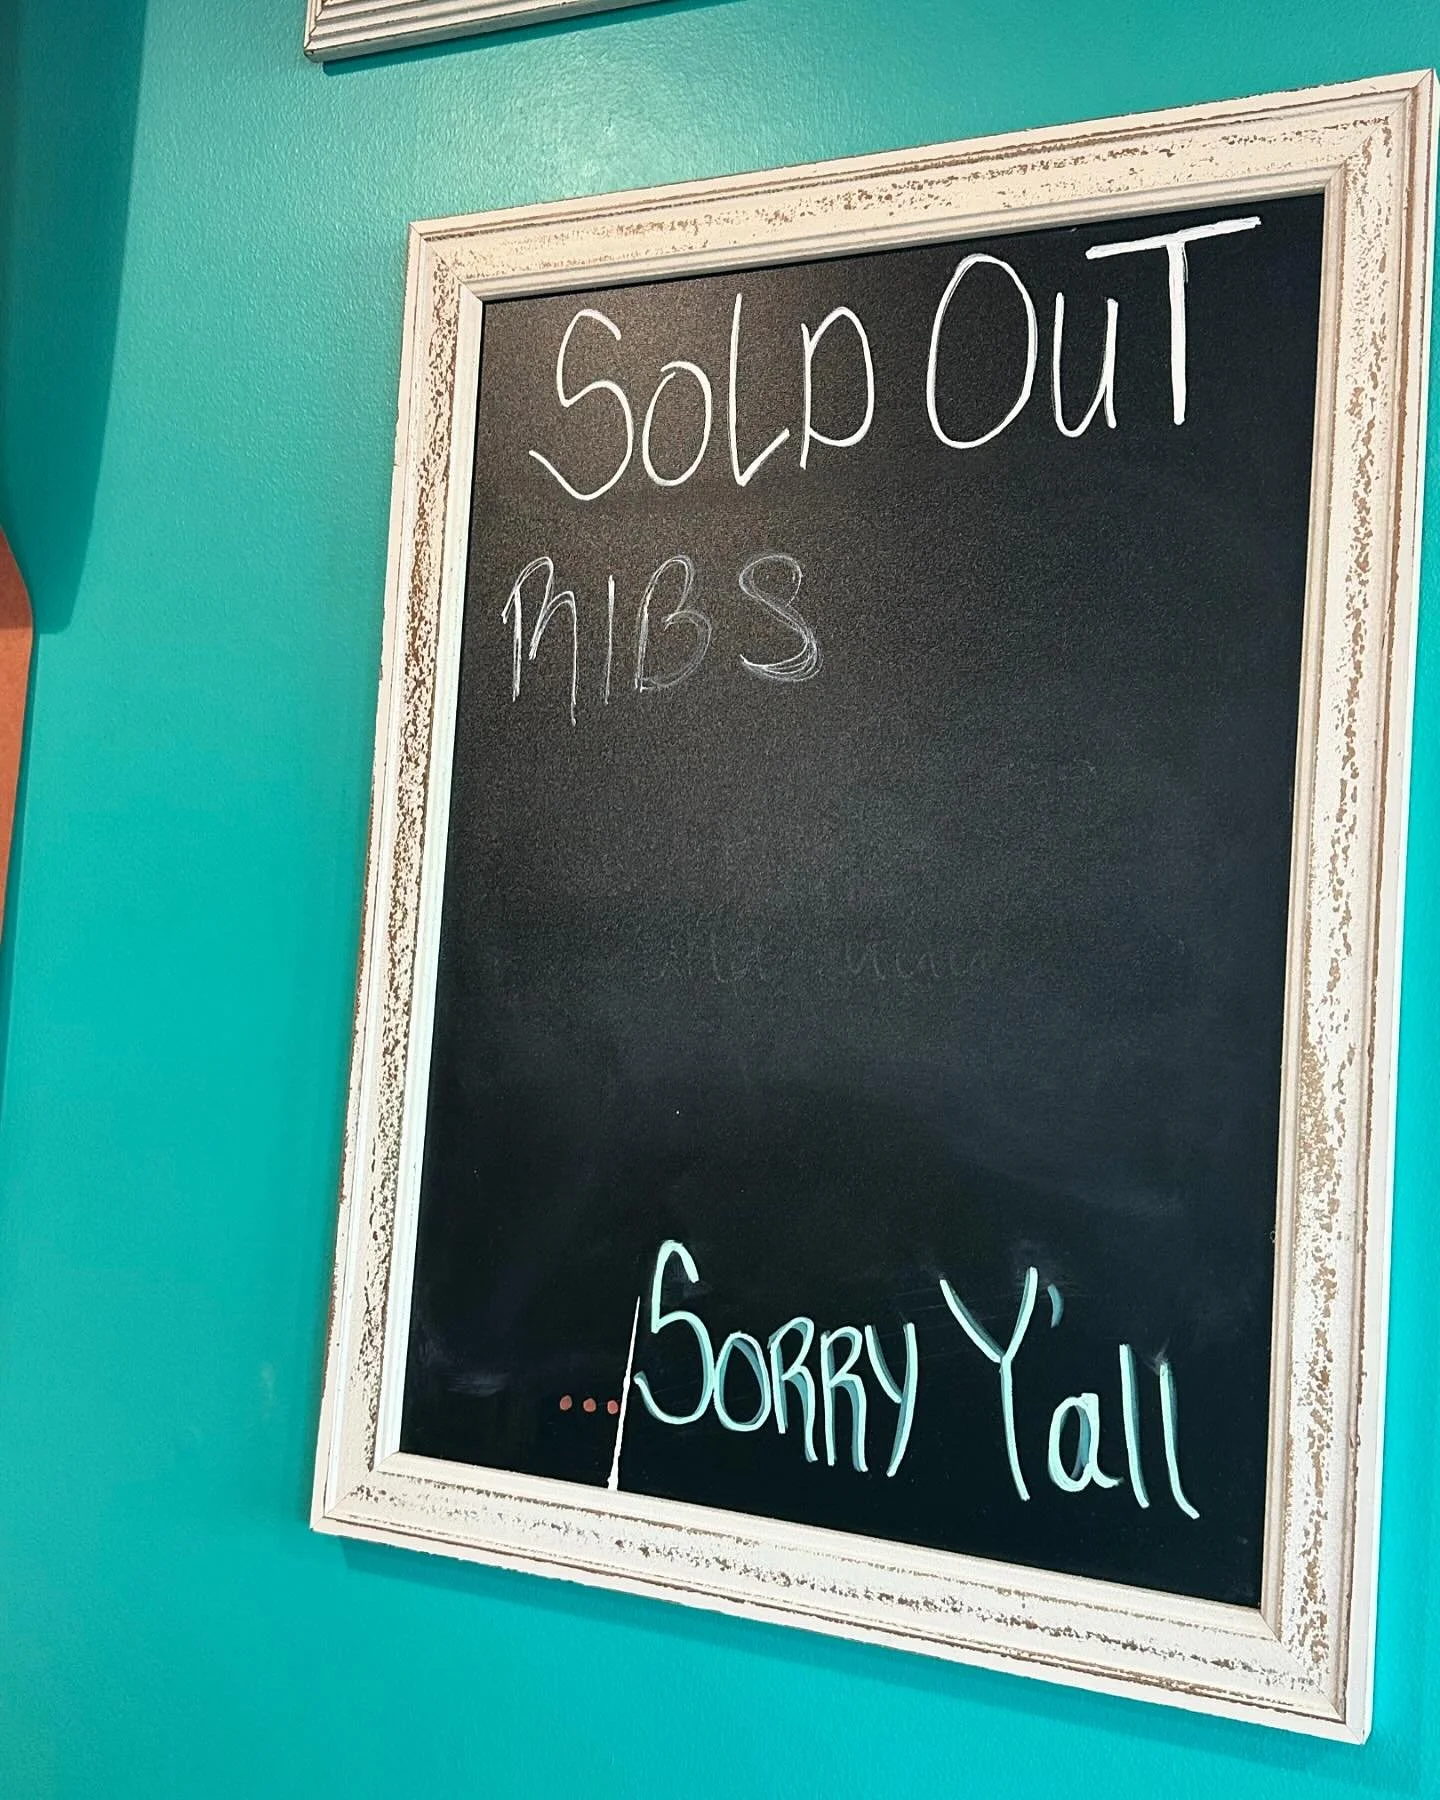 SOLD OUT
RIBS
... SORRY Y'all